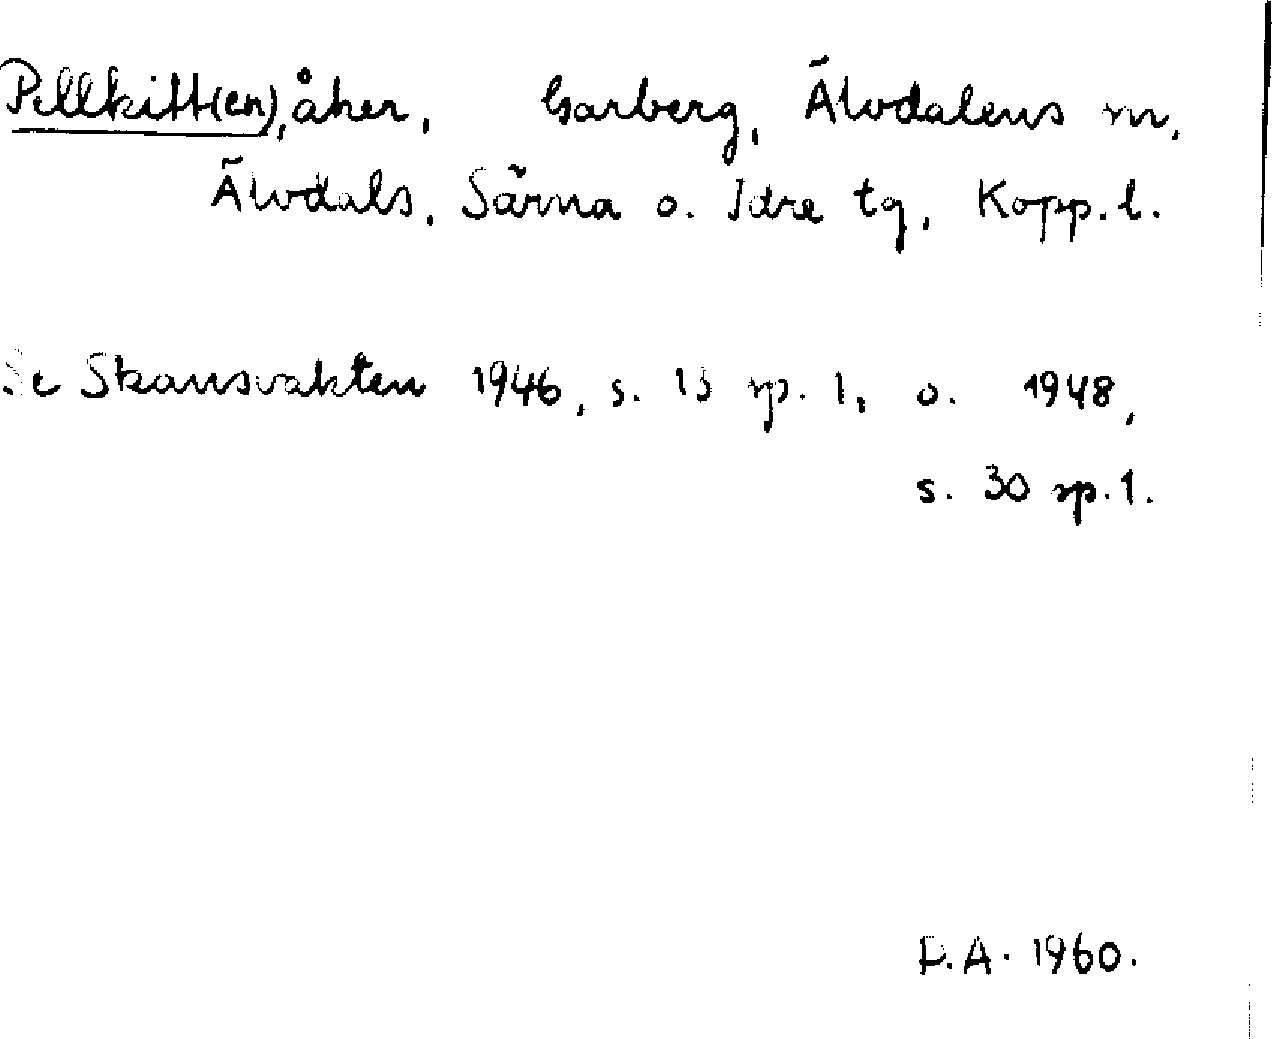 Pellkitt(en), åker, Garberg, Älvdalens sn,
Älvdals, Särna o. Idre tg, Kopp. l.
Se Skansvakten 1946, s. 13 sp. 1, o. 1948,
s. 30 sp. 1.
P.A. 1960.